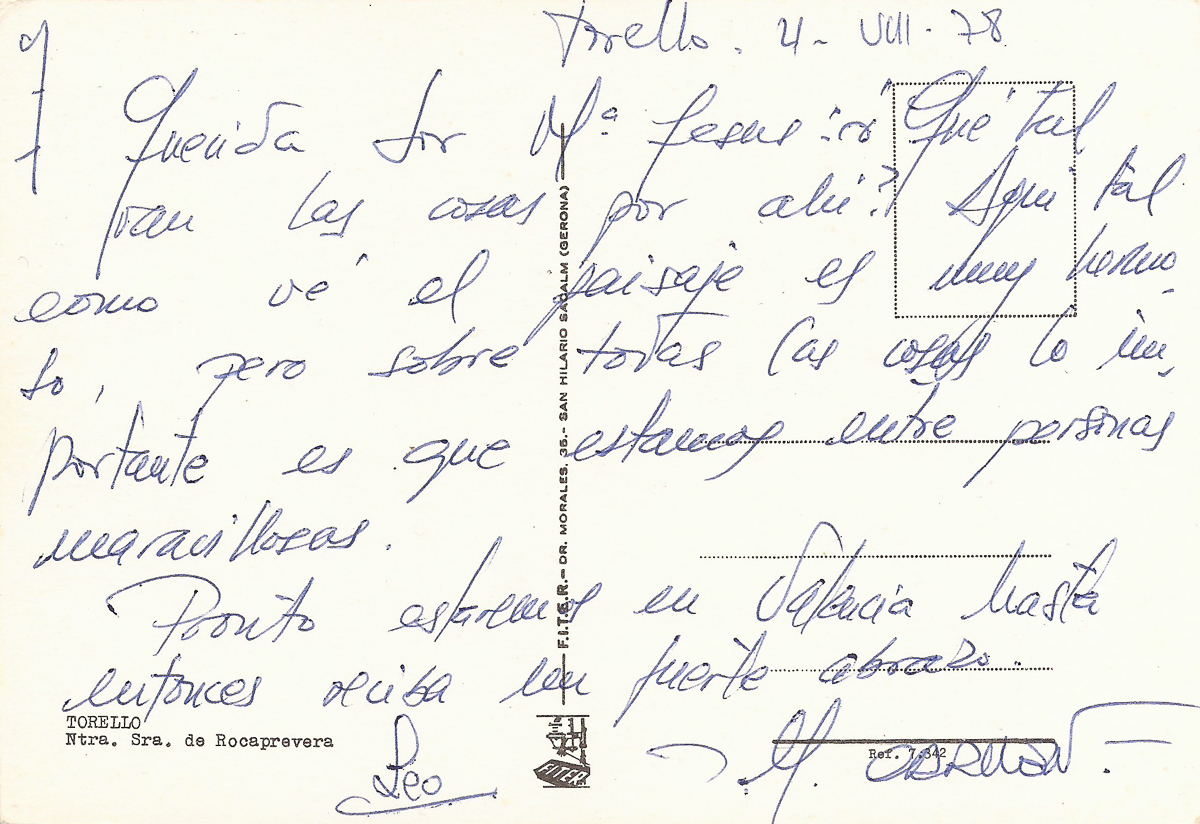 Torello. 4- VIII. 78
Querida Sor Mª Jesus: ¿Qué tal
van las cosas por ahi? Aqui tal
como vé el paisaje es muy hermo-
so, pero sobre todas las cosas lo im-
portante es que estamos entre personas
maravillosas.
Pronto estaremos en Valencia hasta
entonces reciba un fuerte abrazo.
TORELLO
Ntra. Sra. de Rocaprevera
Leo
M.
Ref. 7.342
F.I.T.E.R.- DR. MORALES, 35.- SAN HILARIO SACALM (GERONA)
FITER